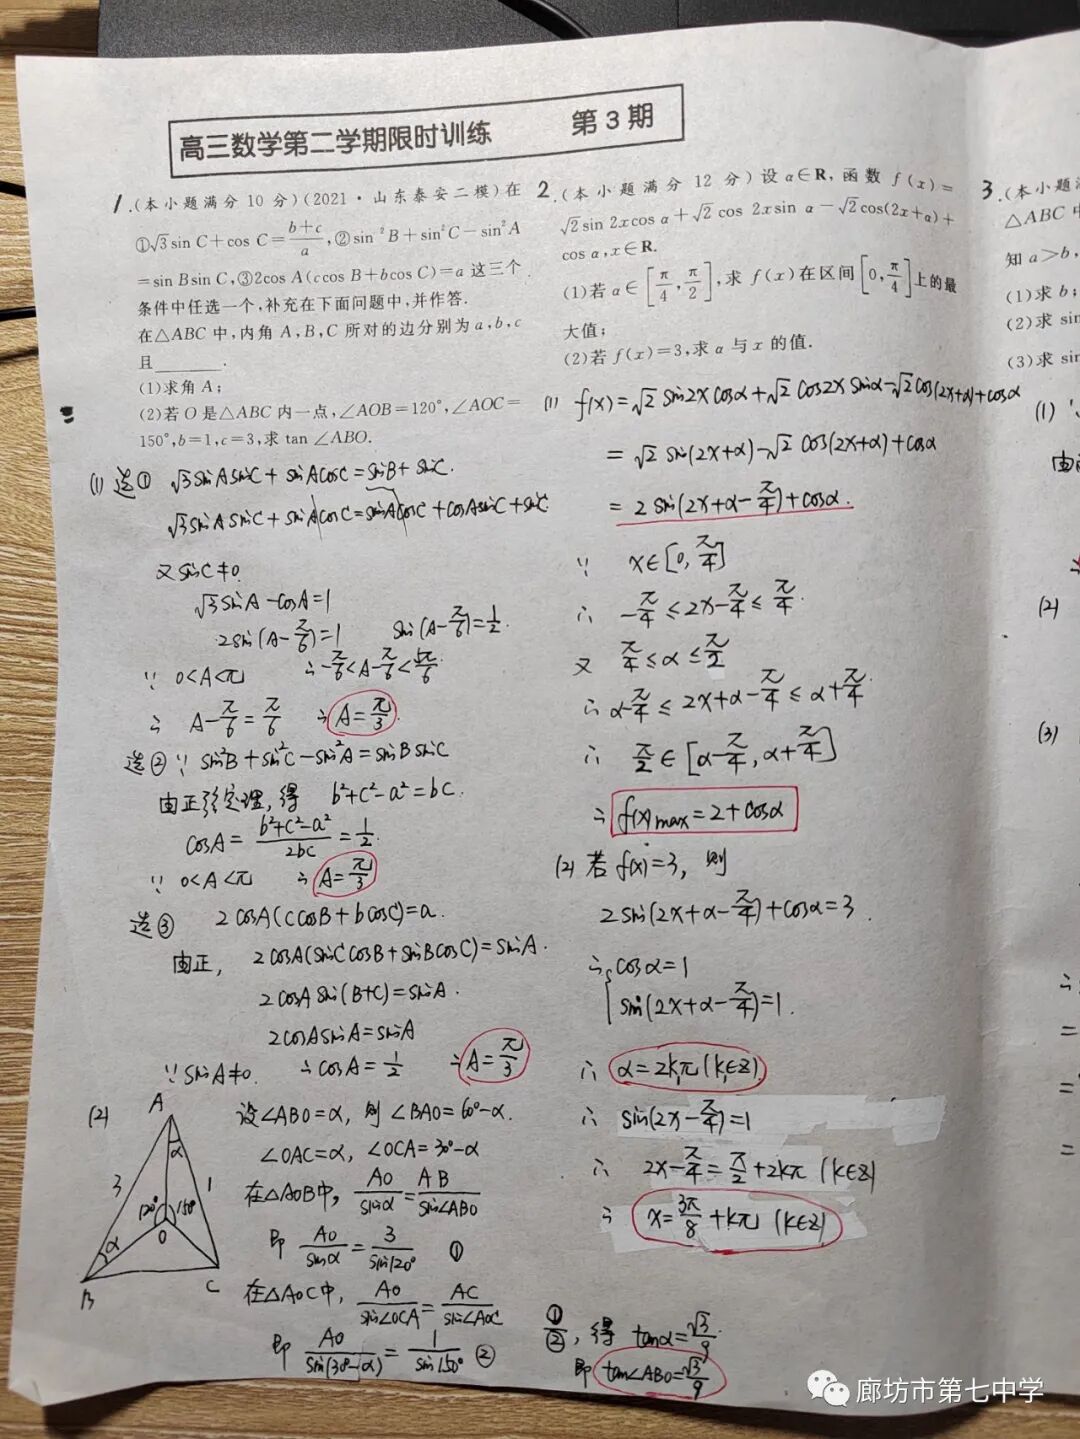 高三数学第二学期限时训练 第3期
1.(本小题满分10分)(2021·山东泰安二模)在
①√3sin C+cos C=(b+c)/a,②sin²B+sin²C-sin²A
=sin Bsin C,③2cos A(ccos B+bcos C)=a这三个
条件中任选一个,补充在下面问题中,并作答.
在△ABC中,内角A,B,C所对的边分别为a,b,c
且______.
(1)求角A;
(2)若O是△ABC内一点,∠AOB=120°,∠AOC=
150°,b=1,c=3,求tan∠ABO.
(1) 选① √3sinAsinC+sinAcosC=sinB+sinC.
√3sinAsinC+sinAcosC=sinAcosC+cosAsinC+sinC
又sinC≠0.
√3sinA-cosA=1
2sin(A-π/6)=1 sin(A-π/6)=1/2.
∵ 0<A<π ∴-π/6<A-π/6<5π/6
∴ A-π/6=π/6 ∴A=π/3.
选②∵ sin²B+sin²C-sin²A=sinBsinC
由正弦定理,得 b²+c²-a²=bc.
cosA=(b²+c²-a²)/2bc=1/2.
∵ 0<A<π ∴A=π/3
选③ 2cosA(ccosB+bcosC)=a.
由正, 2cosA(sinCcosB+sinBcosC)=sinA.
2cosAsin(B+C)=sinA.
2cosAsinA=sinA
∵sinA≠0. ∴cosA=1/2 ∴A=π/3
(2) 设∠ABO=α, 则∠BAO=60°-α.
∠OAC=α, ∠OCA=30°-α
在△AOB中, AO/sinα=AB/sin∠ABO
即 AO/sinα=3/sin120° ①
在△AOC中, AO/sin∠OCA=AC/sin∠AOC
即 AO/sin(30°-α)=1/sin150° ②
A
α
3
1
120°
150°
O
α
B
C
①/②, 得 tanα=√3/9.
即 tan∠ABO=√3/9
2.(本小题满分12分)设α∈R,函数f(x)=
√2sin 2xcos α+√2cos 2xsin α-√2cos(2x+α)+
cos α,x∈R.
(1)若α∈[π/4,π/2],求f(x)在区间[0,π/4]上的最
大值;
(2)若f(x)=3,求α与x的值.
(1) f(x)=√2sin2xcosα+√2cos2xsinα-√2cos(2x+α)+cosα
=√2sin(2x+α)-√2cos(2x+α)+cosα
=2sin(2x+α-π/4)+cosα.
∵ x∈[0,π/4]
∴ -π/4≤2x-π/4≤π/4.
又 π/4≤α≤π/2
∴ α-π/4≤2x+α-π/4≤α+π/4.
∴ π/2∈[α-π/4,α+π/4]
∴ f(x)max=2+cosα
(2) 若f(x)=3, 则
2sin(2x+α-π/4)+cosα=3.
∴{cosα=1
sin(2x+α-π/4)=1.
∴ α=2k₁π(k₁∈Z)
∴ sin(2x-π/4)=1
∴ 2x-π/4=π/2+2kπ (k∈Z)
∴ x=3π/8+kπ (k∈Z)
3.(本小题满
△ABC中
知a>b,
(1)求b;
(2)求sin
(3)求sin
(1)
(2)
(3)
廊坊市第七中学